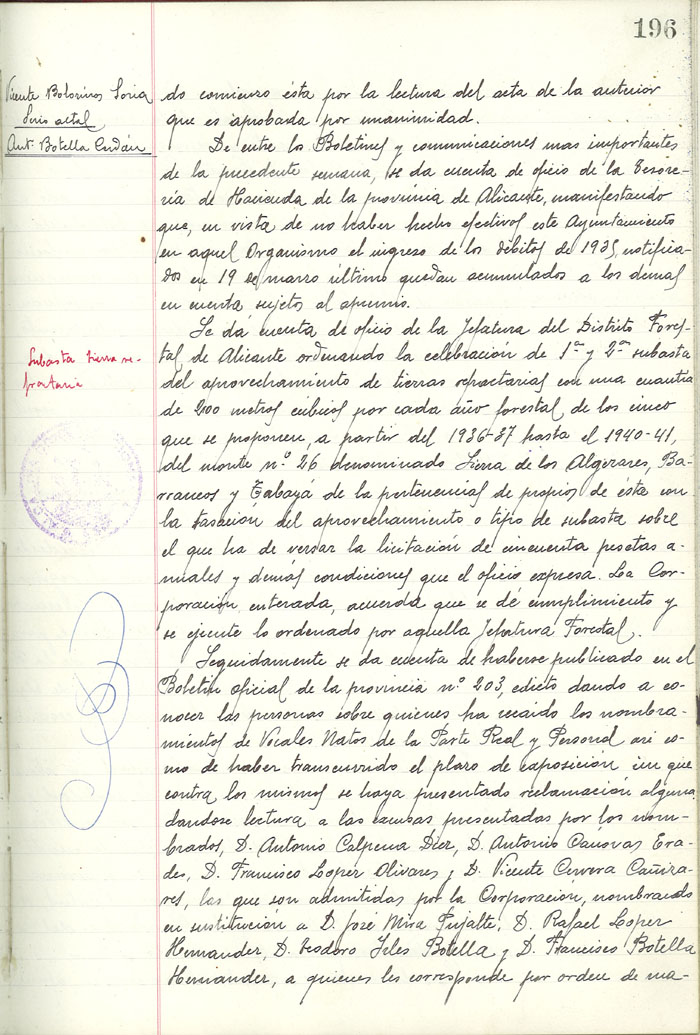 196
Vicente Bolorinos Soria
Srio actal
Ant. Botella Cerdán
do comienzo ésta por la lectura del acta de la anterior
que es aprobada por unanimidad.
De entre los Boletines y comunicaciones mas importantes
de la precedente semana, se da cuenta de oficio de la Tesore-
ría de Hacienda de la provincia de Alicante, manifestando
que, en vista de no haber hecho efectivos este Ayuntamiento
en aquel Organismo el ingreso de los débitos de 1935, notifica-
dos en 19 de marzo último quedan acumulados a los demas
en cuenta sujetos al apremio.
Subasta tierra re-
fractaria
Se dá cuenta de oficio de la Jefatura del Distrito Fores-
tal de Alicante ordenando la celebración de 1ª y 2ª subasta
del aprovechamiento de tierras refractarias con una cuantía
de 200 metros cúbicos por cada año forestal de los cinco
que se proponen, a partir del 1936-37 hasta el 1940-41,
del monte nº 26 denominado Sierra de los Algezares, Ba-
rrancos y Tabayá de la pertenencias de propios de ésta con
la tasación del aprovechamiento o tipo de subasta sobre
el que ha de versar la licitación de cincuenta pesetas a-
nuales y demás condiciones que el oficio expresa. La Cor-
poración, enterada, acuerda que se dé cumplimiento y
se ejecute lo ordenado por aquella Jefatura Forestal.
Seguidamente se da cuenta de haberse publicado en el
Boletin oficial de la provincia nº 203, edicto dando a co-
nocer las personas sobre quienes ha recaído los nombra-
mientos de Vocales Natos de la Parte Real y Personal asi co-
mo de haber transcurrido el plazo de exposición sin que
contra los mismos se haya presentado reclamación alguna
dandose lectura a las excusas presentadas por los nom-
brados, D. Antonio Calpena Diez, D. Antonio Cánovas Era-
des, D. Francisco Lopez Olivares y D. Vicente Cervera Cañiza-
res, las que son admitidas por la Corporación, nombrando
en sustitución a D. José Mira Pujalte, D. Rafael Lopez
Hernandez, D. Teodoro Seles Botella y D. Francisco Botella
Hernandez, a quienes les corresponde por orden de ma-